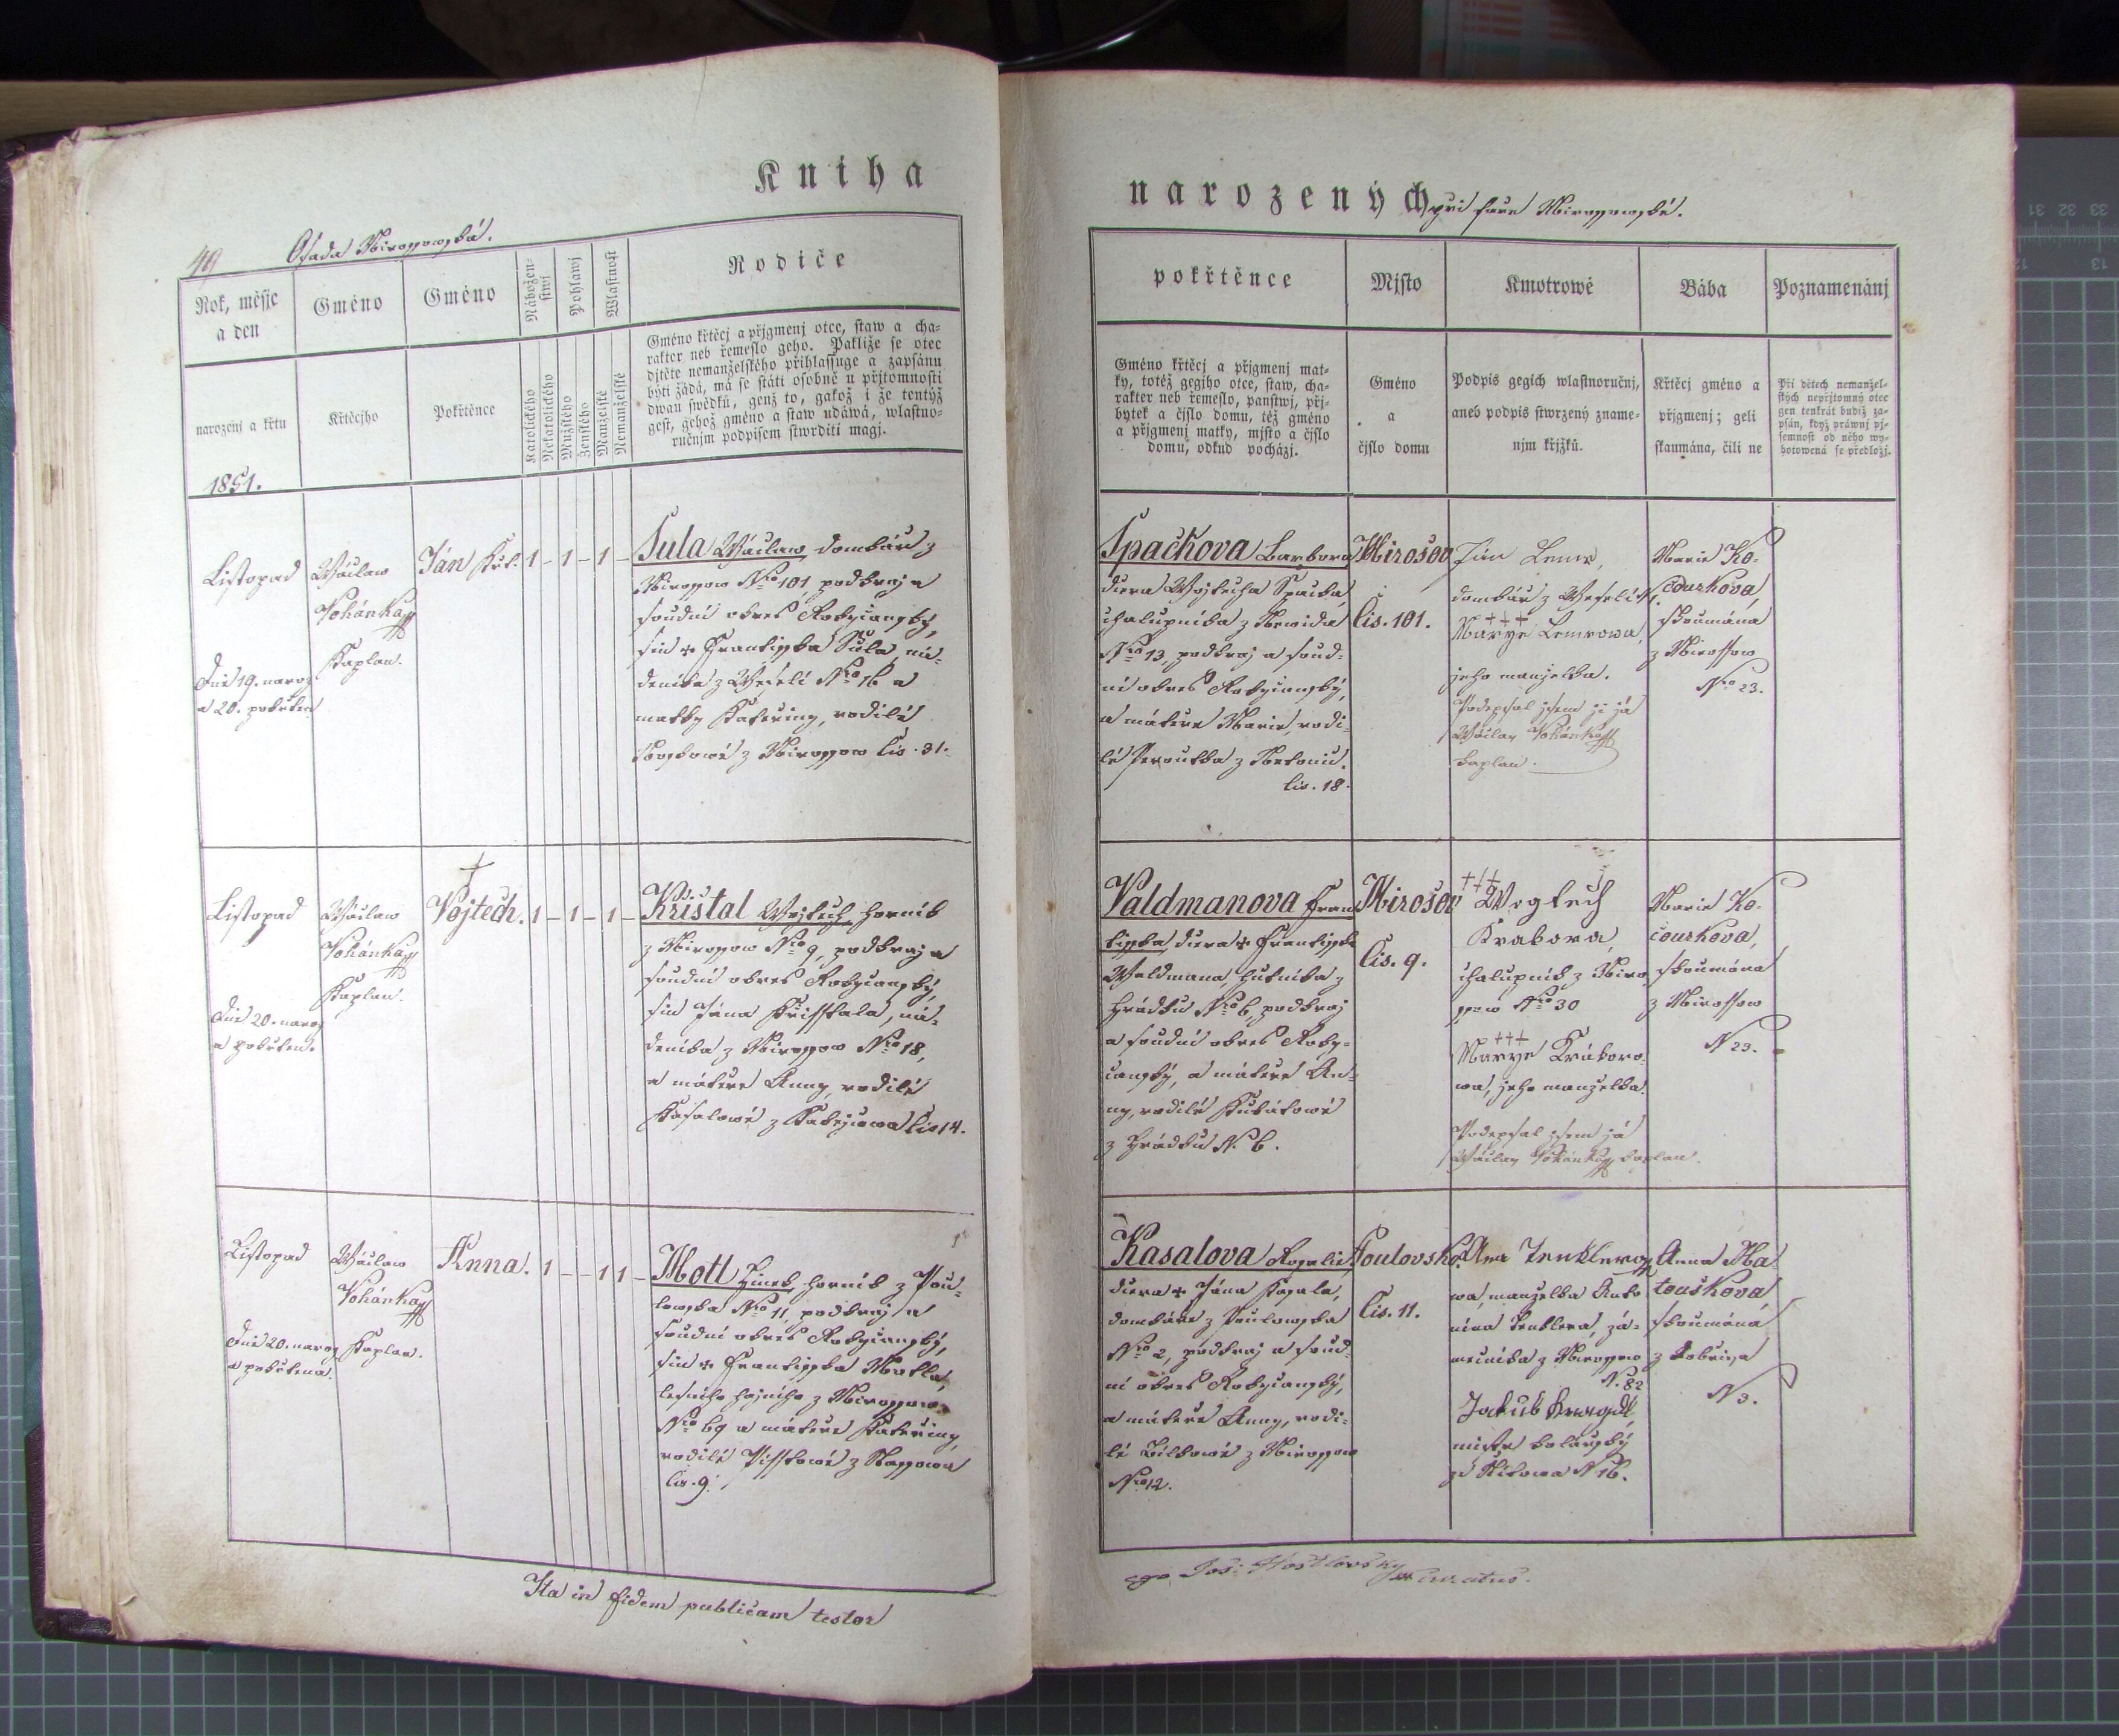 Kniha
49 Osada Mirossowská.
Rok, měsjc
a den
Gméno
Gméno
Nábožen-
stwj
Pohlawj
Wlastnost
Rodiče
narozenj a křtu
Křtěcjho
Pokřtěnce
Katolického
Nekatolického
Mužského
Ženského
Manželské
Nemanželské
Gméno křtěcj a přjgmenj otce, staw a cha-
rakter neb řemeslo geho. Pakliže se otec
djtěte nemanželského přihlassuge a zapsánu
býti žádá, má se státi osobně u přjtomnosti
dwau swědků, genž to, gakož i že tentýž
gest, gehož gméno a staw udáwá, wlastno-
ručnjm podpisem stwrditi magj.
1851.
Listopad
Dne 19. naroz.
a 20. pokřten
Wáclaw
Vohánka
Kaplan.
Ján
1 – 1 – 1 –
Sula Wáclaw, domkář z
Mirossow Nro 101, podkraj a
soudní okres Rokycanský,
sin + Frantisska Sula, ná-
deníka z Weselí Nro 16 a
matky Kateřiny, rodilé
z Mirossow čis. 31.
Listopad
Dne 20. naroz.
a pokřten.
Wáclaw
Vohánka
Kaplan.
Vojtěch.
1 – 1 – 1 –
Křištal Wojtěch horník
z Mirossow Nro 9, podkraj a
soudní okres Rokycanský,
sin Jána Křisstala, ná-
deníka z Mirossow Nro 18,
a máteře Anny, rodilé
Kasalowé z Kakejcowa čis 14.
Listopad
Dne 20. naroz.
a pokřtena.
Wáclaw
Vohánka
Kaplan.
Anna.
1 – – 1 1 –
Motl Hinek, horník z Pou-
lowska Nro 11, podkraj a
soudní okres Rokycanský,
sin + Frantisska Motla,
lesního hajného z Mirossow
Nro 69 a máteře Kateřiny,
rodilé
čis. 9.
Ita in fidem publicam testor
narozených při faře Mirossowské.
pokřtěnce
Mjsto
Kmotrowé
Bába
Poznamenánj
Gméno křtěcj a přjgmenj mat-
ky, totéž gegjho otce, staw, cha-
rakter neb řemeslo, panstwj, přj-
bytek a čjslo domu, též gméno
a přjgmenj matky, mjsto a čjslo
domu, odkud pocházj.
Gméno
a
čjslo domu
Podpis gegich wlastnoručnj,
aneb podpis stwrzený zname-
njm křjžků.
Křtěcj gméno a
přjgmenj; geli
skaumána, čili ne
Při dětech nemanžel-
ských nepřjtomný otec
gen tenkrát budiž za-
psán, když práwnj pj-
semnost od něho wy-
hotowená se předložj.
Spačkova Barbora
dcera Wojtěcha Spačka,
chalupníka z
Nro 13, podkraj a soud-
ní okres Rokycanský,
a máteře Marie, rodi-
lé
čis. 18.
Mirošov
čis. 101.
Ján Lemr,
domkář z Weselí
+++
Marye Lemrowa,
jeho manželka.
Podepsal jsem ji já
Wáclav Vohánka
kaplan.
Marie Ko-
čourkova,
skoumána
z Mirossow
Nro 23.
Valdmanova Fran-
tisska dcera + Frantisska
Waldmana, hutníka z
Hrádku Nro 6, podkraj
a soudní okres Roky-
canský, a máteře An-
ny, rodilé Kubátowé
z Hrádku N. 6.
Mirošov
čis. 9.
+++
Wogtěch
Krabora,
chalupník z Miro-
ssow Nro 30
+++
Marye Kraboro-
wa, jeho manželka.
Podepsal jsem já
Wáclav Vohánka kaplan.
Marie Ko-
čourkova,
skoumána
z Mirossow
N 23.
Kasalova Rozalie,
dcera + Jána Kasala,
domkáře z Poulowska
Nro 2, podkraj a soud-
ní okres Rokycanský,
a máteře Anny, rodi-
lé Bílkowé z Mirossow
Nro 12.
Poulovsko
čis. 11.
Ana Tenklero-
wa, manželka Anto-
nína Tenklera, zá-
mečníka z Mirossow
N. 82
Jakub
mistr kolářský
N 16.
Anna Ma-
touškova
skoumána
z Dobřiva
N 3.
ego Jos: Hostlovský curatus.